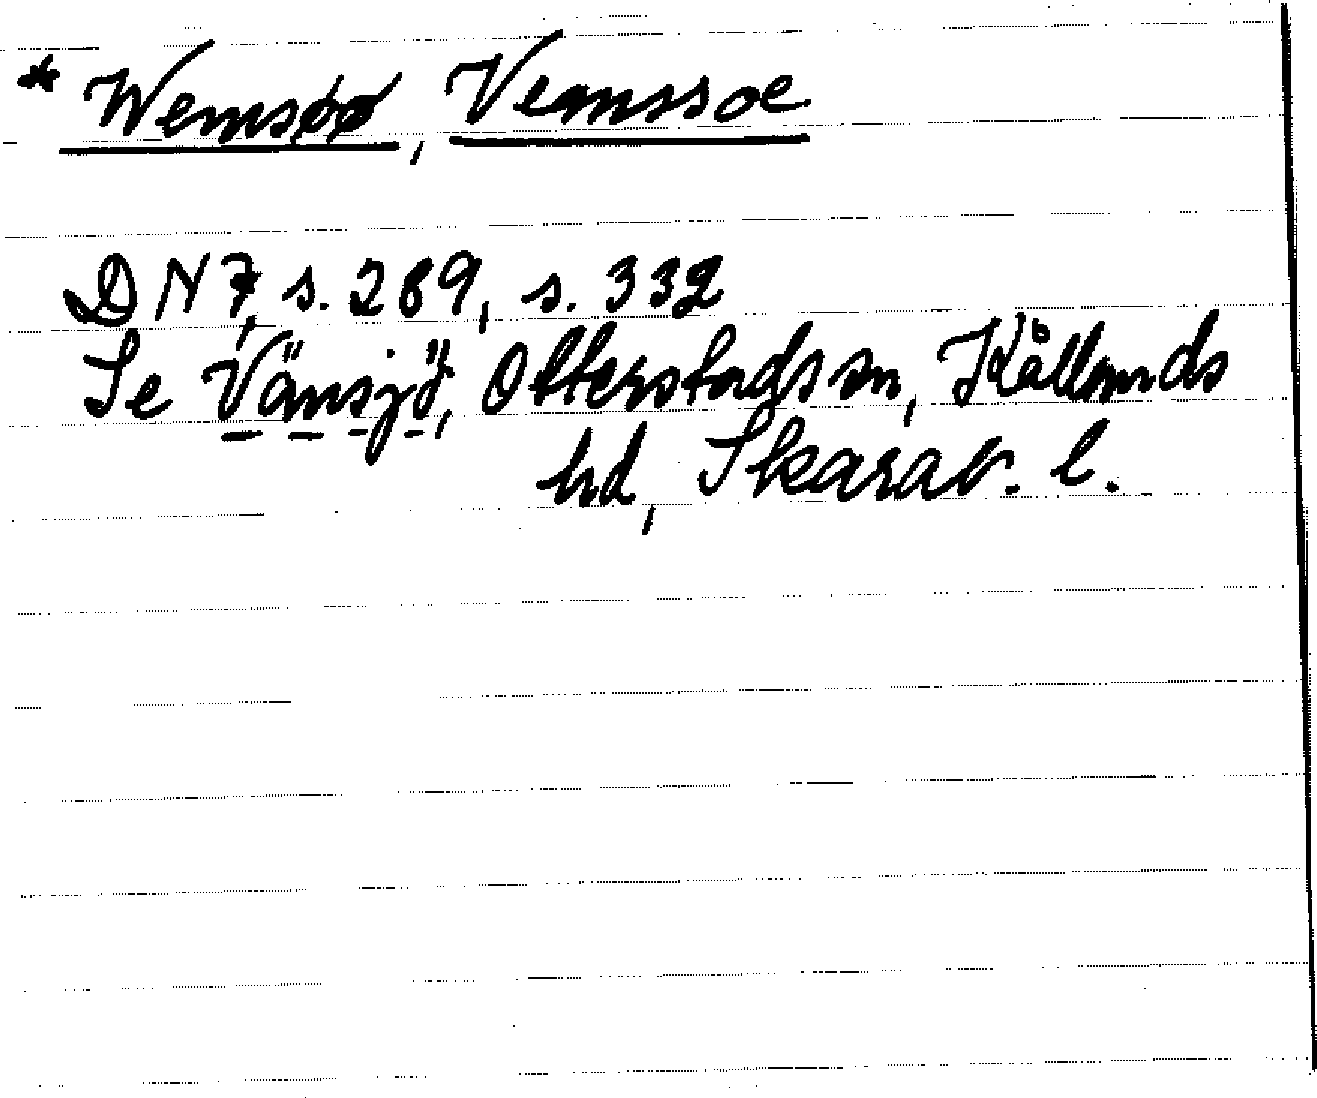 * Wemsøø, Vemssoe
DN 7, s. 289, s. 332
Se Vänsjö, Otterstads sn, Kållands
hd, Skarab. l.